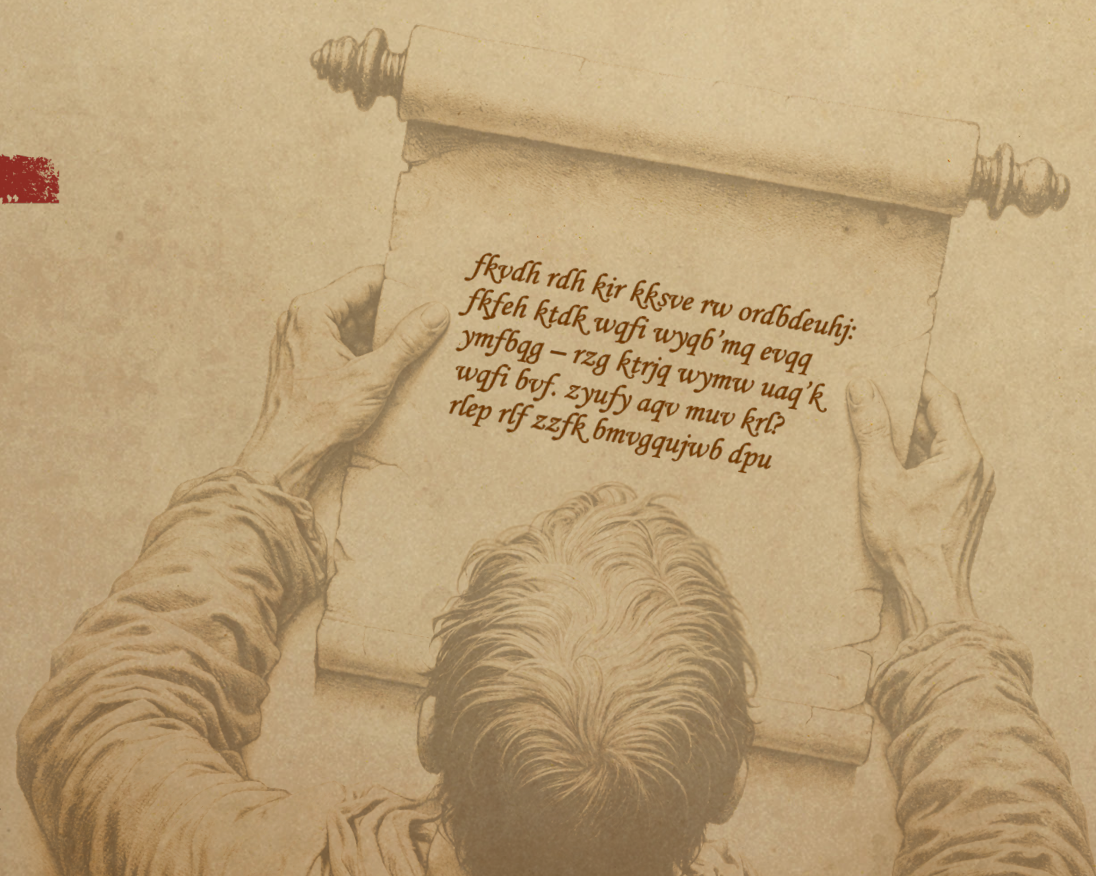 fkvdh rdh kir kksve rw ordbdeuhj:
fkfeh ktdk wqfi wyqb’mq evqq
ymfbqg – rzg ktrjq wymw uaq’k
wqfi bvf. zyufy aqv muv krl?
rlep rlf zzfk bmvgqujwb dpu